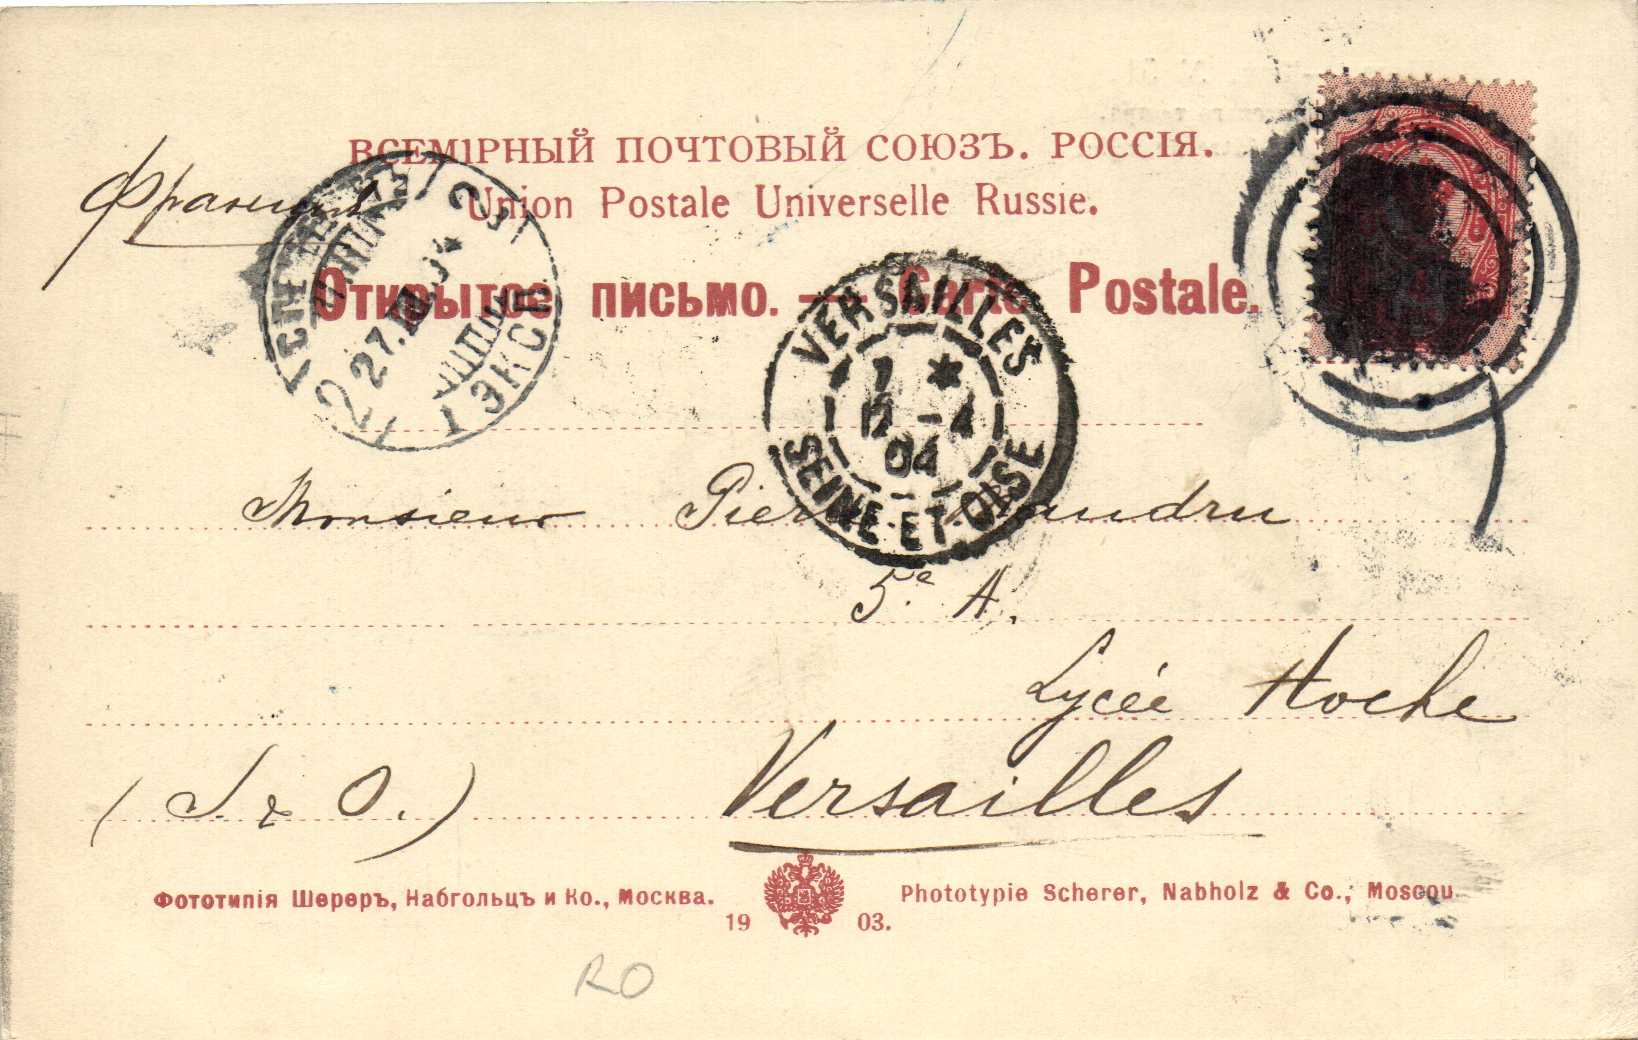 ВСЕМІРНЫЙ ПОЧТОВЫЙ СОЮЗЪ. РОССІЯ.
Union Postale Universelle Russie.
Открытое письмо. — Carte Postale.
VERSAILLES
7 *
12 - 4
04
SEINE-ET-OISE
2 27.III.04 2
ЭКСП
Monsieur
5e. A.
Lycée Hoche
(S. & O.) Versailles
Фототипія Шереръ, Набгольцъ и Ко., Москва.
Phototypie Scherer, Nabholz & Co., Moscou
19 03.
RO